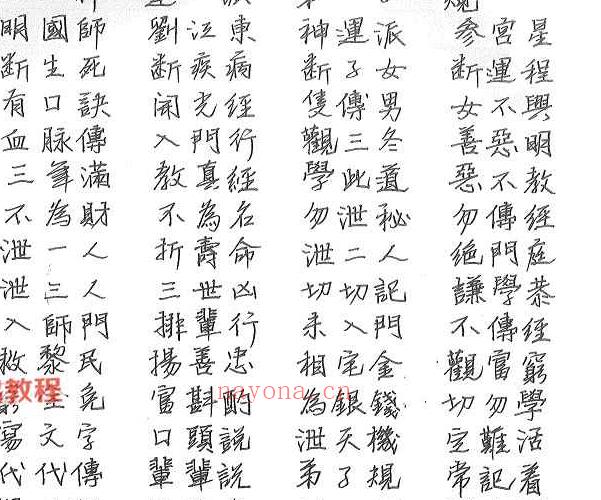 明國師 劉江東 神運派 參宮星
斷生死 斷疾病 斷子女 斷運程
有口訣 開光經 隻傳男 女不興
血脈傳 入門行 觀三冬 善惡明
三年滿 教真經 學此道 惡不教
不為財 不為名 勿泄秘 勿傳經
泄一人 折壽命 泄二人 絕門庭
泄三人 三世凶 切切記 謙學恭
入師門 排輩行 未入門 不傳經
救黎民 揚善忠 相宅金 觀富窮
免 富斟酌 為銀錢 切勿學
寫文字 口頭說 泄天機 定難活
代代傳 輩輩說 弟子規 常記着
教程
nayona.cn